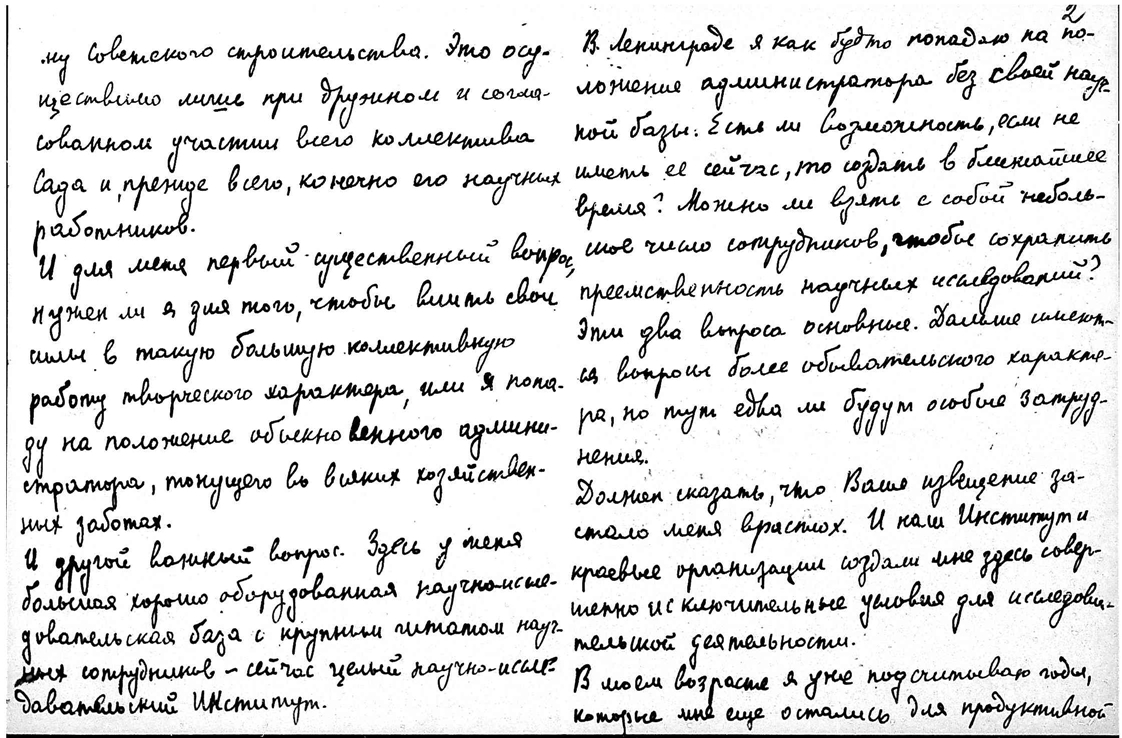 му Советского строительства. Это осу-
ществимо лишь при дружном и согла-
сованном участии всего коллектива
Сада и, прежде всего, конечно его научных
работников.
И для меня первый существенный вопрос,
нужен ли я для того, чтобы влить свои
силы в такую большую коллективную
работу творческого характера, или я попа-
ду на положение обыкновенного админи-
стратора, тонущего во всяких хозяйствен-
ных заботах.
И другой важный вопрос. Здесь у меня
большая хорошо оборудованная научно-иссле-
довательская база с крупным штатом науч-
ных сотрудников – сейчас целый научно-иссле-
давательский Институт.
2
В Ленинграде я как будто попадаю на по-
ложение администратора без своей науч-
ной базы. Есть ли возможность, если не
иметь ее сейчас, то создать в ближайшее
время? Можно ли взять с собой неболь-
шое число сотрудников, чтобы сохранить
преемственность научных исследований?
Эти два вопроса основные. Дальше имеют-
ся вопросы более обывательского характе-
ра, но тут едва ли будут особые затруд-
нения.
Должен сказать, что Ваше извещение за-
стало меня врасплох. И наш Институт и
краевые организации создали мне здесь совер-
шенно исключительные условия для исследова-
тельской деятельности.
В моем возрасте я уже подсчитываю годы,
которые мне еще остались для продуктивной